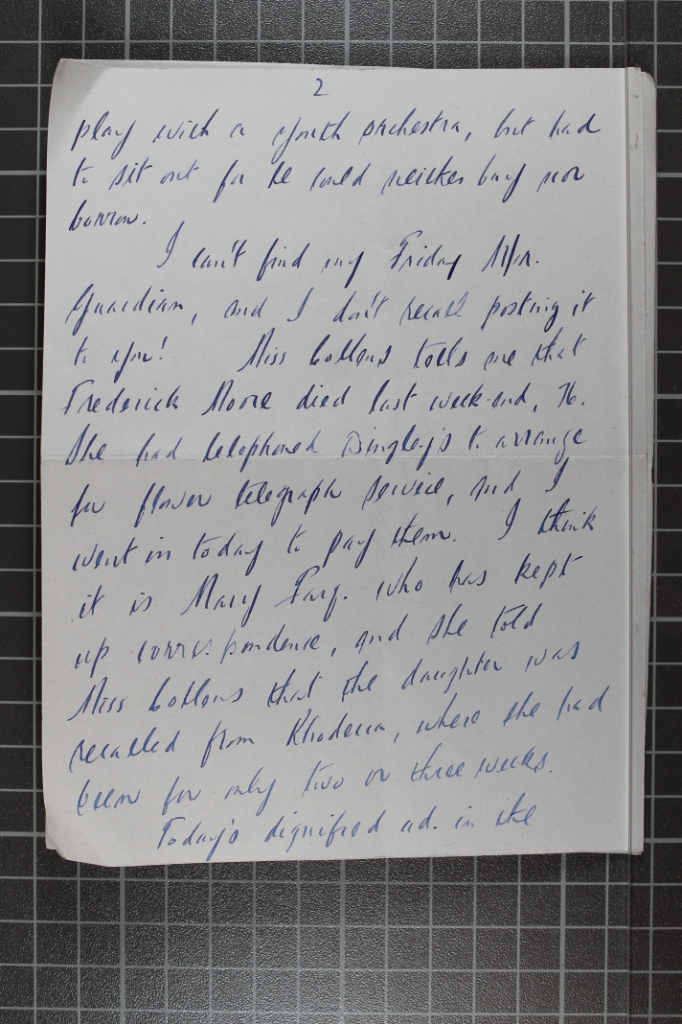 2
play with a youth orchestra, but had
to sit out for he could neither buy nor
borrow.
I can't find my Friday M/r.
Guardian, and I don't recall posting it
to you! Miss Collons tells me that
Frederick Moore died last week-end, 76.
She had telephoned Dingley's to arrange
for flower telegraph service, and I
went in today to pay them. I think
it is Mary Farq. who has kept
up correspondence, and she told
Miss Collons that the daughter was
recalled from Rhodesia, where she had
been for only two or three weeks.
Today's dignified ad. in the